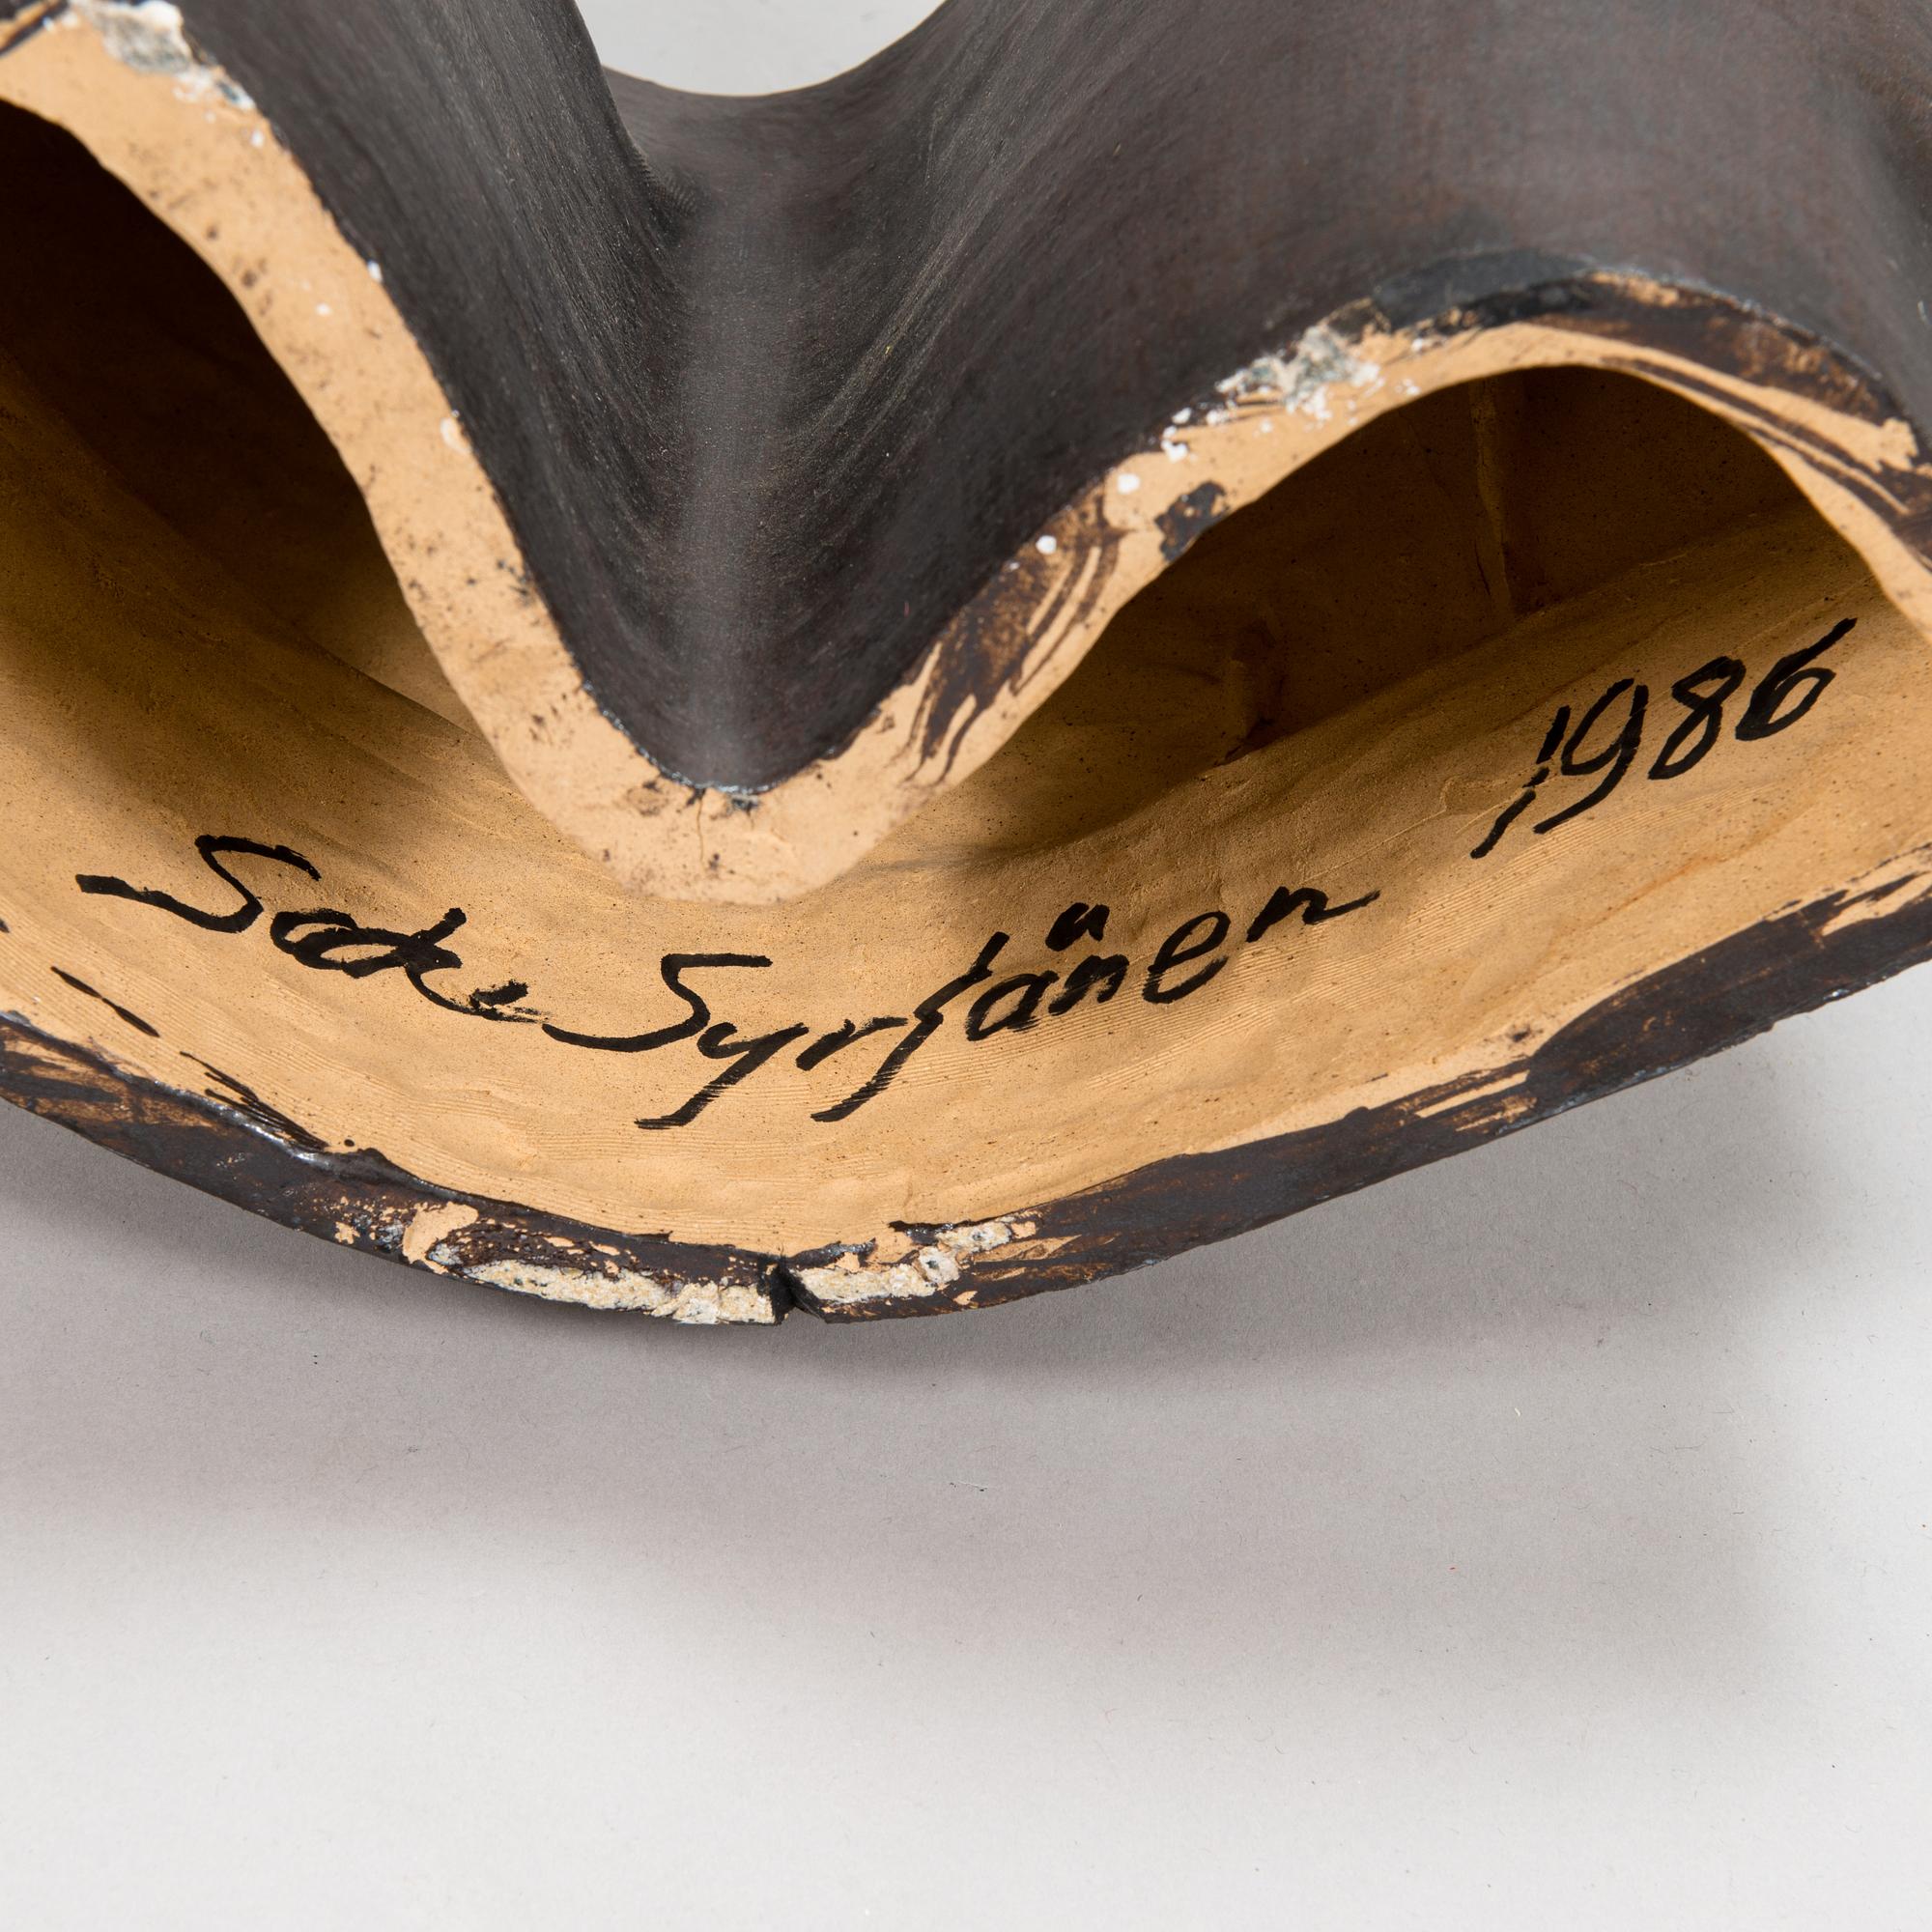 Saku Syrjänen 1986